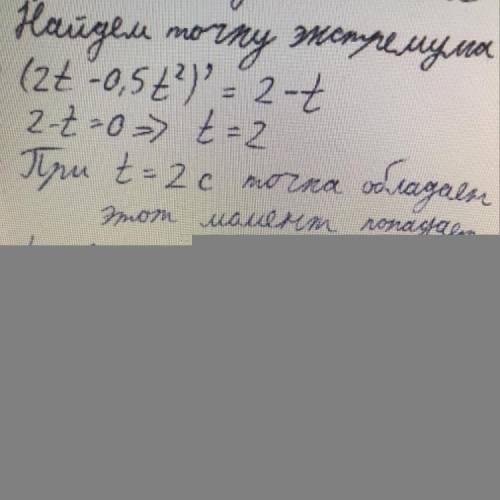 Найдем точку экстремума
(2t - 0,5t²)' = 2 - t
2-t=0 => t = 2
При t = 2 с точка обладает
этот момент попадает